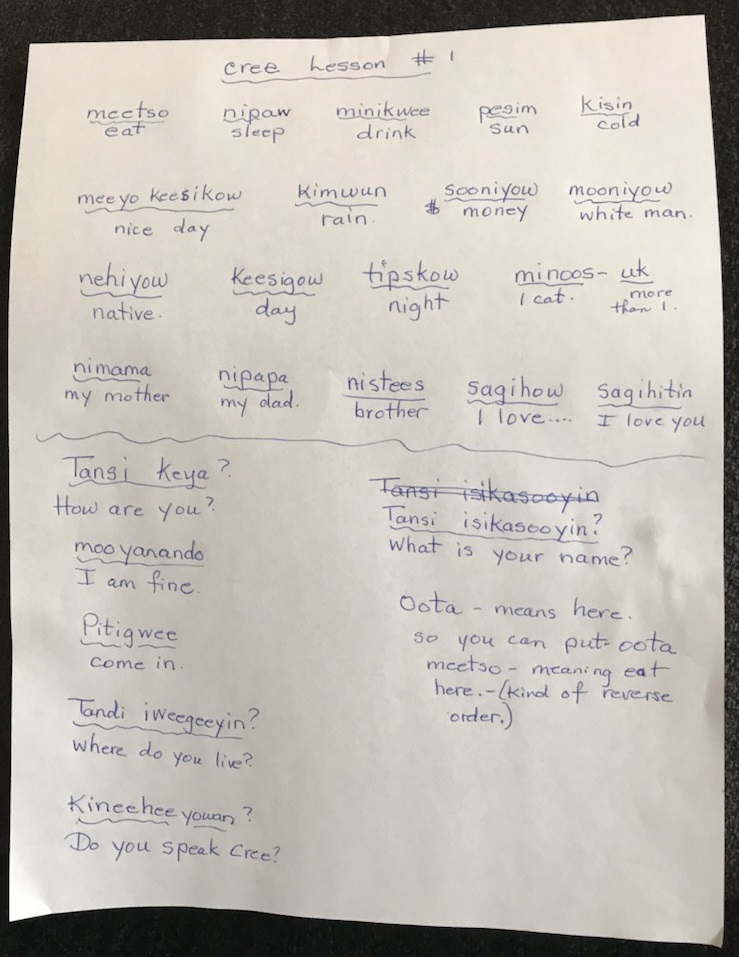 Cree Lesson # 1
meetso nipaw minikwee pesim Kisin
eat sleep drink sun cold
meeyo keesikow Kimwun sooniyow mooniyow
nice day rain. $ money white man.
nehiyow Keesigow tipskow minoos- uk
native. day night 1 cat. more than 1.
nimama nipapa nistees sagihow Sagihitin
my mother my dad. brother I love.... I love you
Tansi Keya?
How are you?
mooyanando
I am fine.
Pitigwee
come in.
Tandi iweegeeyin?
where do you live?
Kineeheeyowan?
Do you speak Cree?
Tansi isikasooyin
Tansi isikasooyin?
What is your name?
Oota - means here.
so you can put- oota
meetso - meaning eat
here. - (Kind of reverse
order.)